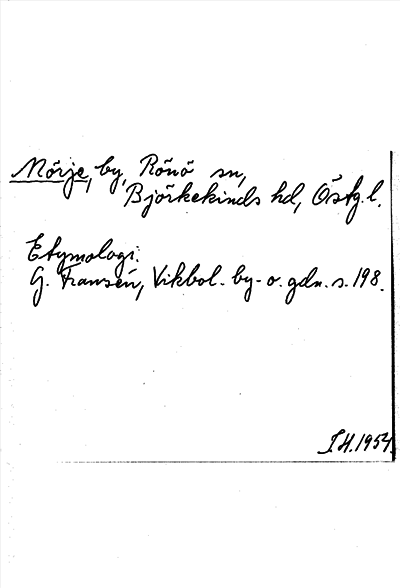 Mörje, by, Rönö sn,
Björkekinds hd, Östg. l.
Etymologi:
G. Fransén, Vikbol. by- o. gdn. s. 198.
I H. 1954.